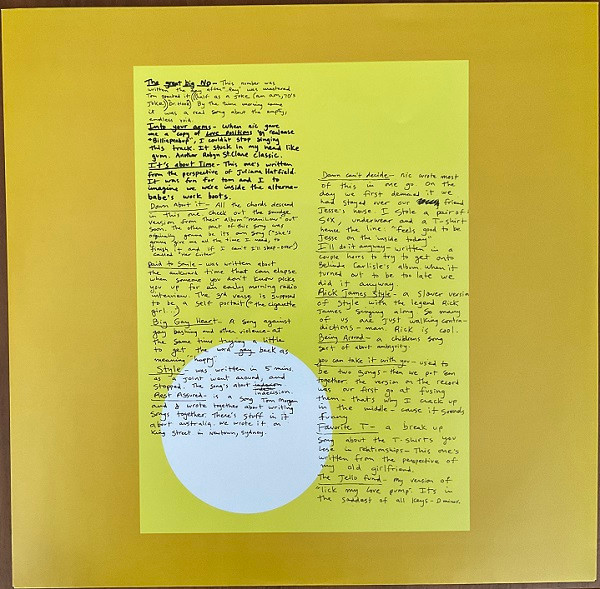 The great big No - This number was
written the day after "Ray" was mastered
Tom started it (half as a joke (am am, 70's
Joker) Dr. Hook) By the time morning came
it was a real song about the empty,
endless void.
Into your arms - When nic gave
me a copy of Love Positions "89" release
"Billiepeebup", I couldn't stop singing
this track. It stuck in my head like
gum. Another Robyn St.Clare classic.
It's about time - This one's written
from the perspective of Juliana Hatfield.
It was fun for tom and I to
imagine we were inside the alterna-
babe's work boots.
Down About it - All the chords descend
in this one. Check out the smudge
version from their Album "manilow" out
soon. The other part of this song was
originally gonna be its own song ("She's
gonna give me all the time I need, to
finish it and if I can't I'll skip over")
called "Her Editor"
paid to smile - was written about
the awkward time that can elapse
when someone you don't know picks
you up for an early morning radio
interview. The 3rd verse is supposed
to be a self portrait ("the cigarette
girl...)
Big Gay Heart - A song against
gay bashing and other violence - at
the same time trying a little
to get the word gay back as
meaning "happy"
Style - was written in 5 mins.
as a joint went around, and
stopped. The song's about
indecision
Rest Assured - is a song Tom Morgan
and I wrote together about writing
songs together. There's stuff in it
about australia. We wrote it on
King street in Newtown, Sydney.
Dawn can't decide - nic wrote most
of this in one go On the
day we first demoed it we
had stayed over our friend
Jesse's house. I stole a pair of
sox, underwear and a T-shirt
hence the line: "feels good to be
Jesse on the inside today"
I'll do it anyway - written in a
couple hours to try to get onto
Belinda Carlisle's album. When it
turned out to be too late we
did it anyway.
Rick James Style - a slower version
of Style with the legend Rick
James singing along so many
of us are just walking contra-
dictions - man. Rick is cool.
Being Around - a childrens song
sort of about ambiguity.
you can take it with you - used to
be two songs - then we put em
together. the version on the record
was our first go at fusing
them - thats why I crack up
in the middle - cause it sounds
funny
Favorite T - a break up
song about the T-shirts you
lose in relationships - This one's
written from the perspective of
my old girlfriend.
The Jello Fund - My version of
"lick my love pump". It's in
the saddest of all keys - D minor.